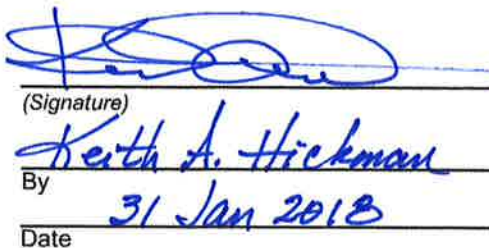 (Signature)
Keith A. Hickman
By
31 Jan 2018
Date